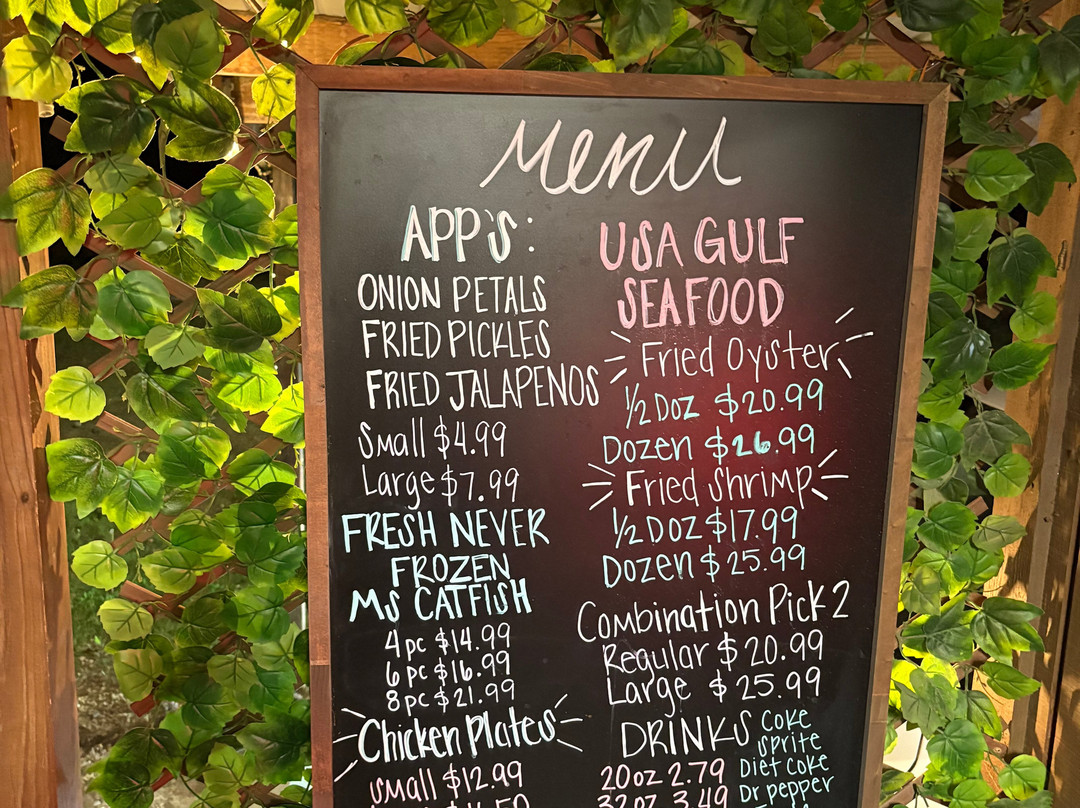 Menu
APP'S:
ONION PETALS
FRIED PICKLES
FRIED JALAPENOS
Small $4.99
Large $7.99
FRESH NEVER
FROZEN
MS CATFISH
4pc $14.99
6pc $16.99
8pc $21.99
Chicken Plates
Small $12.99
USA GULF
SEAFOOD
Fried Oyster
1/2 Doz $20.99
Dozen $26.99
Fried Shrimp
1/2 Doz $17.99
Dozen $25.99
Combination Pick 2
Regular $20.99
Large $25.99
DRINKS
20oz 2.79
32oz 3.49
Coke
Sprite
Diet Coke
Dr pepper